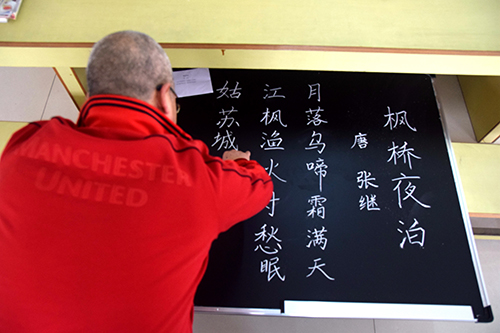 枫桥夜泊
唐 张继
月落乌啼霜满天
江枫渔火对愁眠
姑苏城
MANCHESTER
UNITED